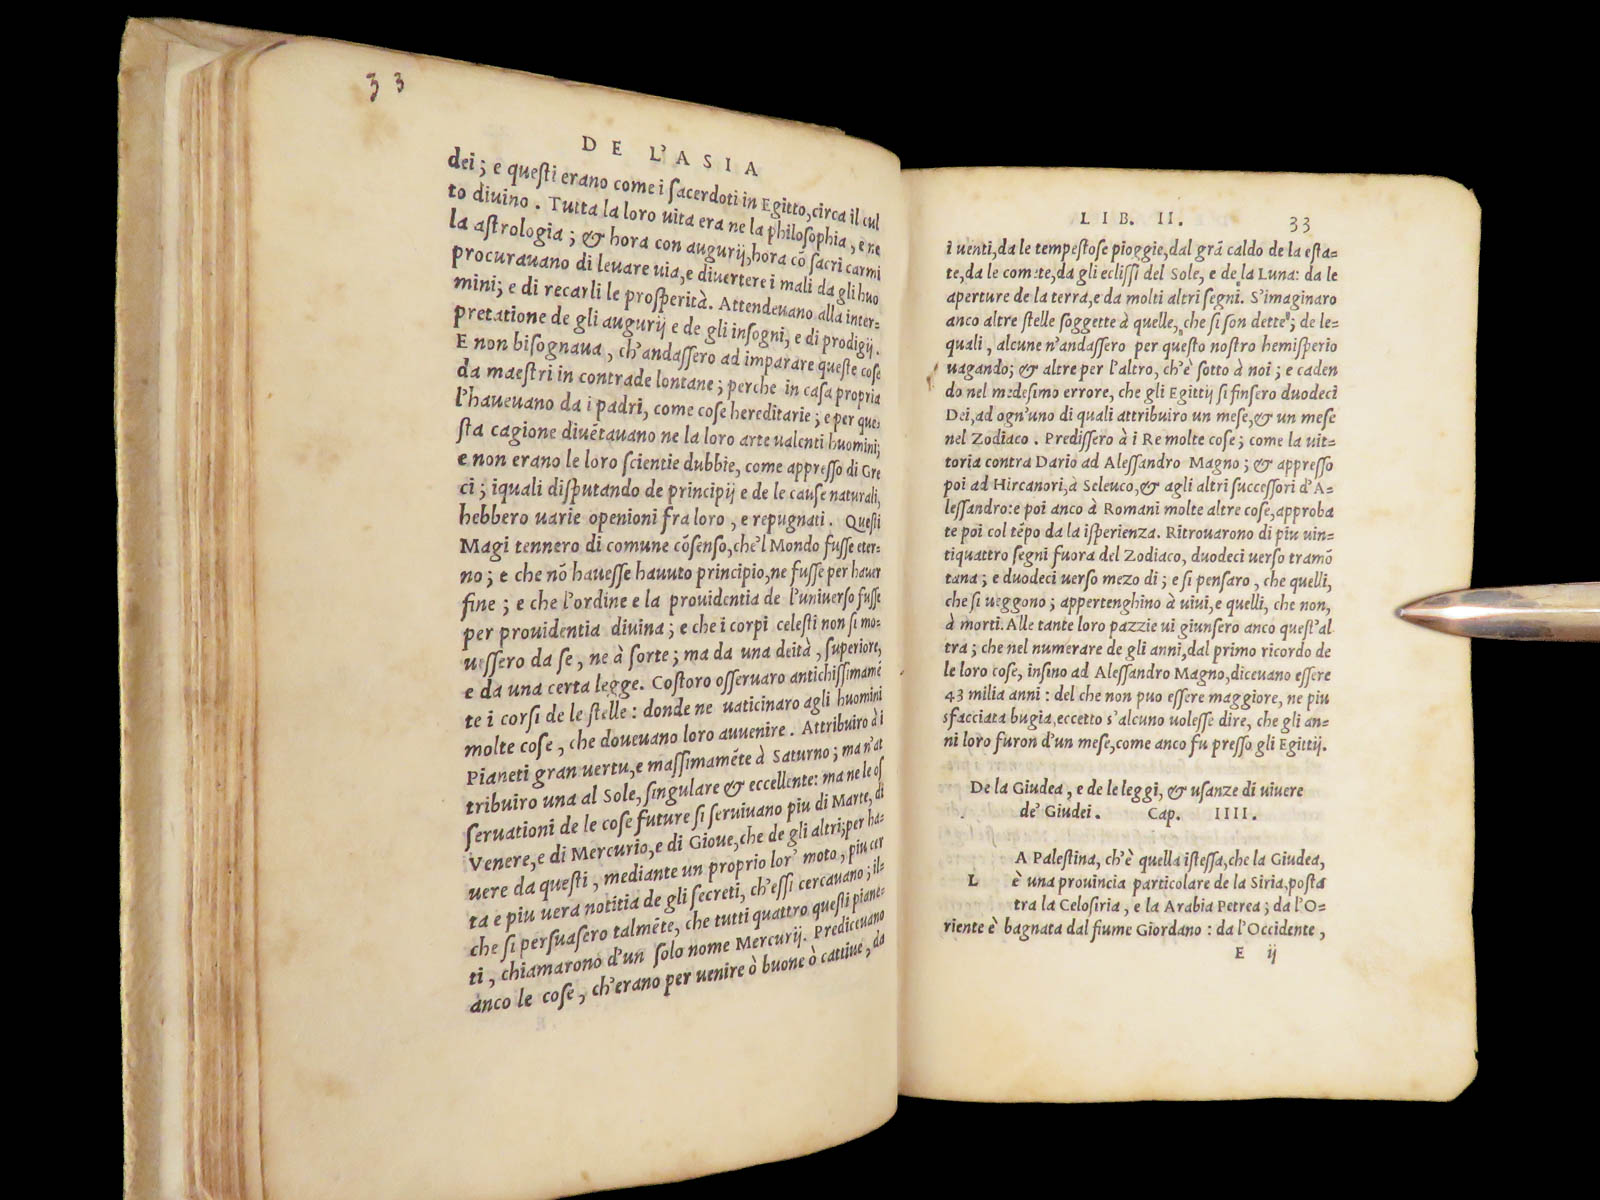 33
DE L'ASIA
dei; e queſti erano come i ſacerdoti in Egitto, circa il cul
to diuino. Tutta la loro uita era ne la philoſophia, e ne
la aſtrologia; & hora con augurij, hora cõ ſacri carmi
procurauano di leuare uia, e diuertere i mali da gli huo
mini; e di recarli le proſperità. Attendeuano alla inter-
pretatione de gli augurij e de gli inſogni, e di prodigij.
E non biſognaua, ch'andaſſero ad imparare queſte coſe
da maeſtri in contrade lontane; perche in caſa propria
l'haueuano da i padri, come coſe hereditarie; e per que-
ſta cagione diuẽtauano ne la loro arte ualenti huomini;
e non erano le loro ſcientie dubbie, come appreſſo di Gre
ci; iquali diſputando de principij e de le cauſe naturali,
hebbero uarie openioni fra loro, e repugnati. Queſti
Magi tennero di comune cõſenſo, che'l Mondo fuſſe eter-
no; e che nõ haueſſe hauuto principio, ne fuſſe per hauer
fine; e che l'ordine e la prouidentia de l'uniuerſo fuſſe
per prouidentia diuina; e che i corpi celeſti non ſi mo-
ueſſero da ſe, ne à ſorte; ma da una deità, ſuperiore,
e da una certa legge. Coſtoro oſſeruaro antichiſſimamẽ
te i corſi de le ſtelle: donde ne uaticinaro agli huomini
molte coſe, che doueuano loro auuenire. Attribuiro à i
Pianeti gran uertu, e maſſimamẽte à Saturno; ma n'at
tribuiro una al Sole, ſingulare & eccellente: ma ne le oſ
ſeruationi de le coſe future ſi ſeruiuano piu di Marte, di
Venere, e di Mercurio, e di Gioue, che de gli altri; per ha-
uere da queſti, mediante un proprio lor' moto, piu cer
ta e piu uera notitia de gli ſecreti, ch'eſſi cercauano; il-
che ſi perſuaſero talmẽte, che tutti quattro queſti piane-
ti, chiamarono d'un ſolo nome Mercurij. Prediceuano
anco le coſe, ch'erano per uenire ò buone ò cattiue, da
LIB. II. 33
i uenti, da le tempeſtoſe pioggie, dal grã caldo de la eſta-
te, da le comete, da gli eclißi del Sole, e de la Luna: da le
aperture de la terra, e da molti altri ſegni. S'imaginaro
anco altre ſtelle ſoggette à quelle, che ſi ſon dette; de le-
quali, alcune n'andaſſero per queſto noſtro hemiſperio
uagando; & altre per l'altro, ch'è ſotto à noi; e caden
do nel medeſimo errore, che gli Egittij ſi finſero duodeci
Dei, ad ogn'uno di quali attribuiro un meſe, & un meſe
nel Zodiaco. Prediſſero à i Re molte coſe; come la uit-
toria contra Dario ad Aleſſandro Magno; & appreſſo
poi ad Hircanori, à Seleuco, & agli altri ſucceſſori d'A-
leſſandro: e poi anco à Romani molte altre coſe, approba
te poi col tẽpo da la iſperienza. Ritrouarono di piu uin-
tiquattro ſegni fuora del Zodiaco, duodeci uerſo tramõ
tana; e duodeci uerſo mezo di; e ſi penſaro, che quelli,
che ſi ueggono; appertenghino à uiui, e quelli, che non,
à morti. Alle tante loro pazzie ui giunſero anco queſt'al
tra; che nel numerare de gli anni, dal primo ricordo de
le loro coſe, inſino ad Aleſſandro Magno, diceuano eſſere
43 milia anni: del che non puo eſſere maggiore, ne piu
sfacciata bugia, eccetto s'alcuno uoleſſe dire, che gli an-
ni loro furon d'un meſe, come anco fu preſſo gli Egittij.
De la Giudea, e de le leggi, & uſanze di uiuere
de' Giudei. Cap. IIII.
A Paleſtina, ch'è quella iſteſſa, che la Giudea,
L è una prouincia particolare de la Siria, poſta
tra la Celoſiria, e la Arabia Petrea; da l'O-
riente è bagnata dal fiume Giordano: da l'Occidente,
E ij